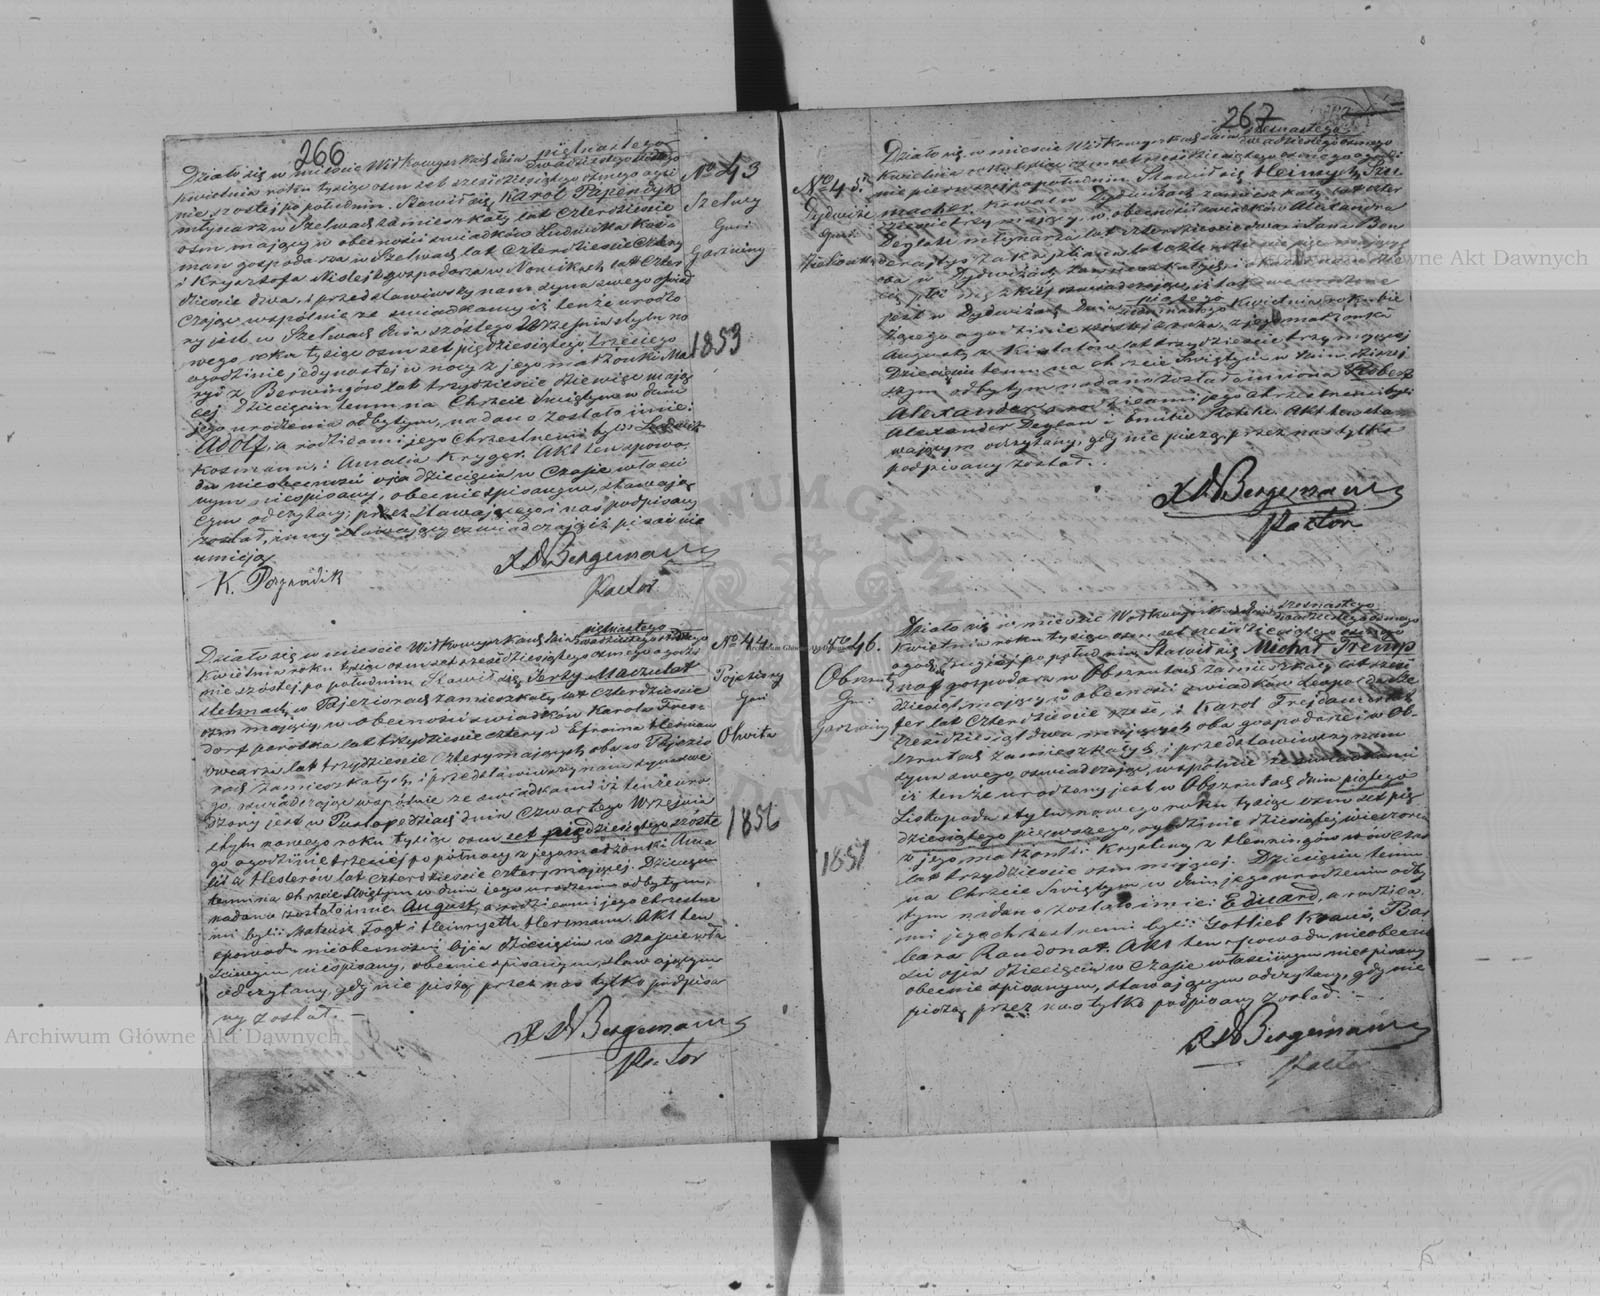 266
Działo się w mieście Wiłkowyszkach dnia piętnastego
dwudziestego siódmego
Kwietnia roku tysiąc osm set sześćdziesiątego osmego o godzi
nie szóstej po południu. Stawił się, Karol Papendyk
młynarz w Szelwach zamieszkały lat czterdzieście
osm mający w obecności świadków Ludwika Kos=
man gospodarza w Szelwach lat czterdzieście cztery
i Krysztofa gospodarza w lat czter
dzieście dwa, i przedstawiwszy nam syna swego oświad
czając wspólnie ze świadkamy iż tenże urodzo
ny jest w Szelwach dnia szóstego Września stylu no
wego, roku tysiąc osm set pięćdziesiątego trzeciego
o godzinie jedynastej w nocy z jego małżonki Ma
ryi z lat trzydzieście dziewięć mają
cej. Dziecięciu temu na Chrzcie Świętym w dniu
jego urodzenia odbytym, nadano zostało imie:
Adolf, a rodzicami jego Chrzestnemi byli: Ludwik
Kosmann, i Amalia Kryger. Akt ten spowo=
du nieobecności ojca dziecięcia w czasie właści
wym niespisany, obecnie spisanym, stawają=
cym odczytany; przez Stawającego i nas podpisany
został, inny stawający oświadczając iż pisać nie
umieją
K.
Bergemann
Pastor
No 43
Szelwy
Gmi
1853
Działo się w mieście Wiłkowyszkach dnia piętnastego
dwudziestego siódmego
Kwietnia roku tysiąc osm set sześćdziesiątego osmego o godzi
nie szóstej, po południu. Stawił się, Jerzy Maczulat
stelmach, w Pojeziorach zamieszkały lat czterdzieście
osm mający, w obecności świadków Karola
dorf parobka lat trzydzieście cztery i Efroima Herman
owcarza lat trzydzieście cztery mających, oba w Pojezio
rach zamieszkałych, i przedstawiwszy nam syna swe
go, oświadczając wspólnie ze świadkami iż tenże uro
dzony jest w Pustopedziach dnia czwartego Września
stylu nowego roku tysiąc osm set pięćdziesiątego szóste
go o godzinie trzeciej po północy z jego małżonki Ama
lii z Hesterów lat czterdzieście cztery mającej. Dziecięciu
temu na chrzcie Świętym w dniu jego urodzenia odbytym,
nadano zostało imie: August, a rodzicami jego Chrzestne
mi byli: Mateusz Fogt i Heinryetta Hermann. Akt ten
spowodu nieobecności Ojca dziecięcia w czasie wła
ściwym niespisany, obecnie spisanym, stawającym
odczytany, gdy nie piszą, przez nas tylko podpisa
ny został. —
Bergemann
Pastor
No 44
Pojeziory
Gmi
Olwita
1856
267
Działo się w mieście Wiłkowyszkach dnia szesnastego
dwudziestego osmego
Kwietnia roku tysiąc osm set sześćdziesiątego osmego o godzi
nie pierwszej po południu. Stawił się Heinrych Szu
macher, kowal w Dydwiżach zamieszkały, lat czter
dzieści trzy mający, w obecności świadków Alexandra
Deglau młynarza lat czterdzieście dwa, i Jana Bon
oba w Dydwiżach zamieszkałych, i okazał nam dzie
cię płci męzkiej oświadczając, iż takowe urodzone
jest w Dydwiżach dnia piątego
siedmnastego Kwietnia roku bie
żącego o godzinie szóstej z rana, z jego małżonki
Augusty z lat trzydzieście trzy mającej
Dziecięciu temu na chrzcie Świętym w dniu dzisiej
szym odbytym nadano zostało imiona Robert
Alexander, a rodzicami jego Chrzestnemi byli:
Alexander Deglau i Emilia Akt ten sta
wającym odczytany, gdy nie piszą, przez nas tylko
podpisany został.
Bergemann
Pastor
No 45.
Dydwiże
Gmi
Działo się w mieście Wiłkowyszkach dnia szesnastego
dwudziestego osmego
Kwietnia roku tysiąc osm set sześćdziesiątego osmego o
godz. drugiej po południu. Stawił się Michał Tremp
nał gospodarz w Obszrutach zamieszkały lat sześć
dziesiąt mający w obecności świadków Leopolda
fer lat czterdzieście sześć, i Karol
sześćdziesiąt dwa mających oba gospodarze w Ob=
szrutach zamieszkałych, i przedstawiwszy nam
syna swego, oświadczając, wspólnie ze świadkami
iż tenże urodzony jest w Obszrutach dnia piątego
Listopada stylu nowego roku tysiąc osm set pięć
dziesiątego pierwszego, o godzinie dziesiątej wieczorem
z jego małżonki Krystiny z Henningów wówczas
lat trzydzieście osm mającej. Dziecięciu temu
na Chrzcie Świętym w dniu jego urodzenia odby
tym nadano zostało imie: Eduard, a rodzica
mi jego chrzestnemi byli: Gottlieb Kraus, Bar
bara Randonat. Akt ten spowodu nieobecno
ści ojca dziecięcia w czasie właściwym niespisany
obecnie spisanym, stawającym odczytany, gdy nie
piszą, przez nas tylko podpisany został. —
Bergemann
Pastor
No 46.
Obszruty
Gmi
1851
Archiwum Główne Akt Dawnych
Archiwum Główne Akt Dawnych